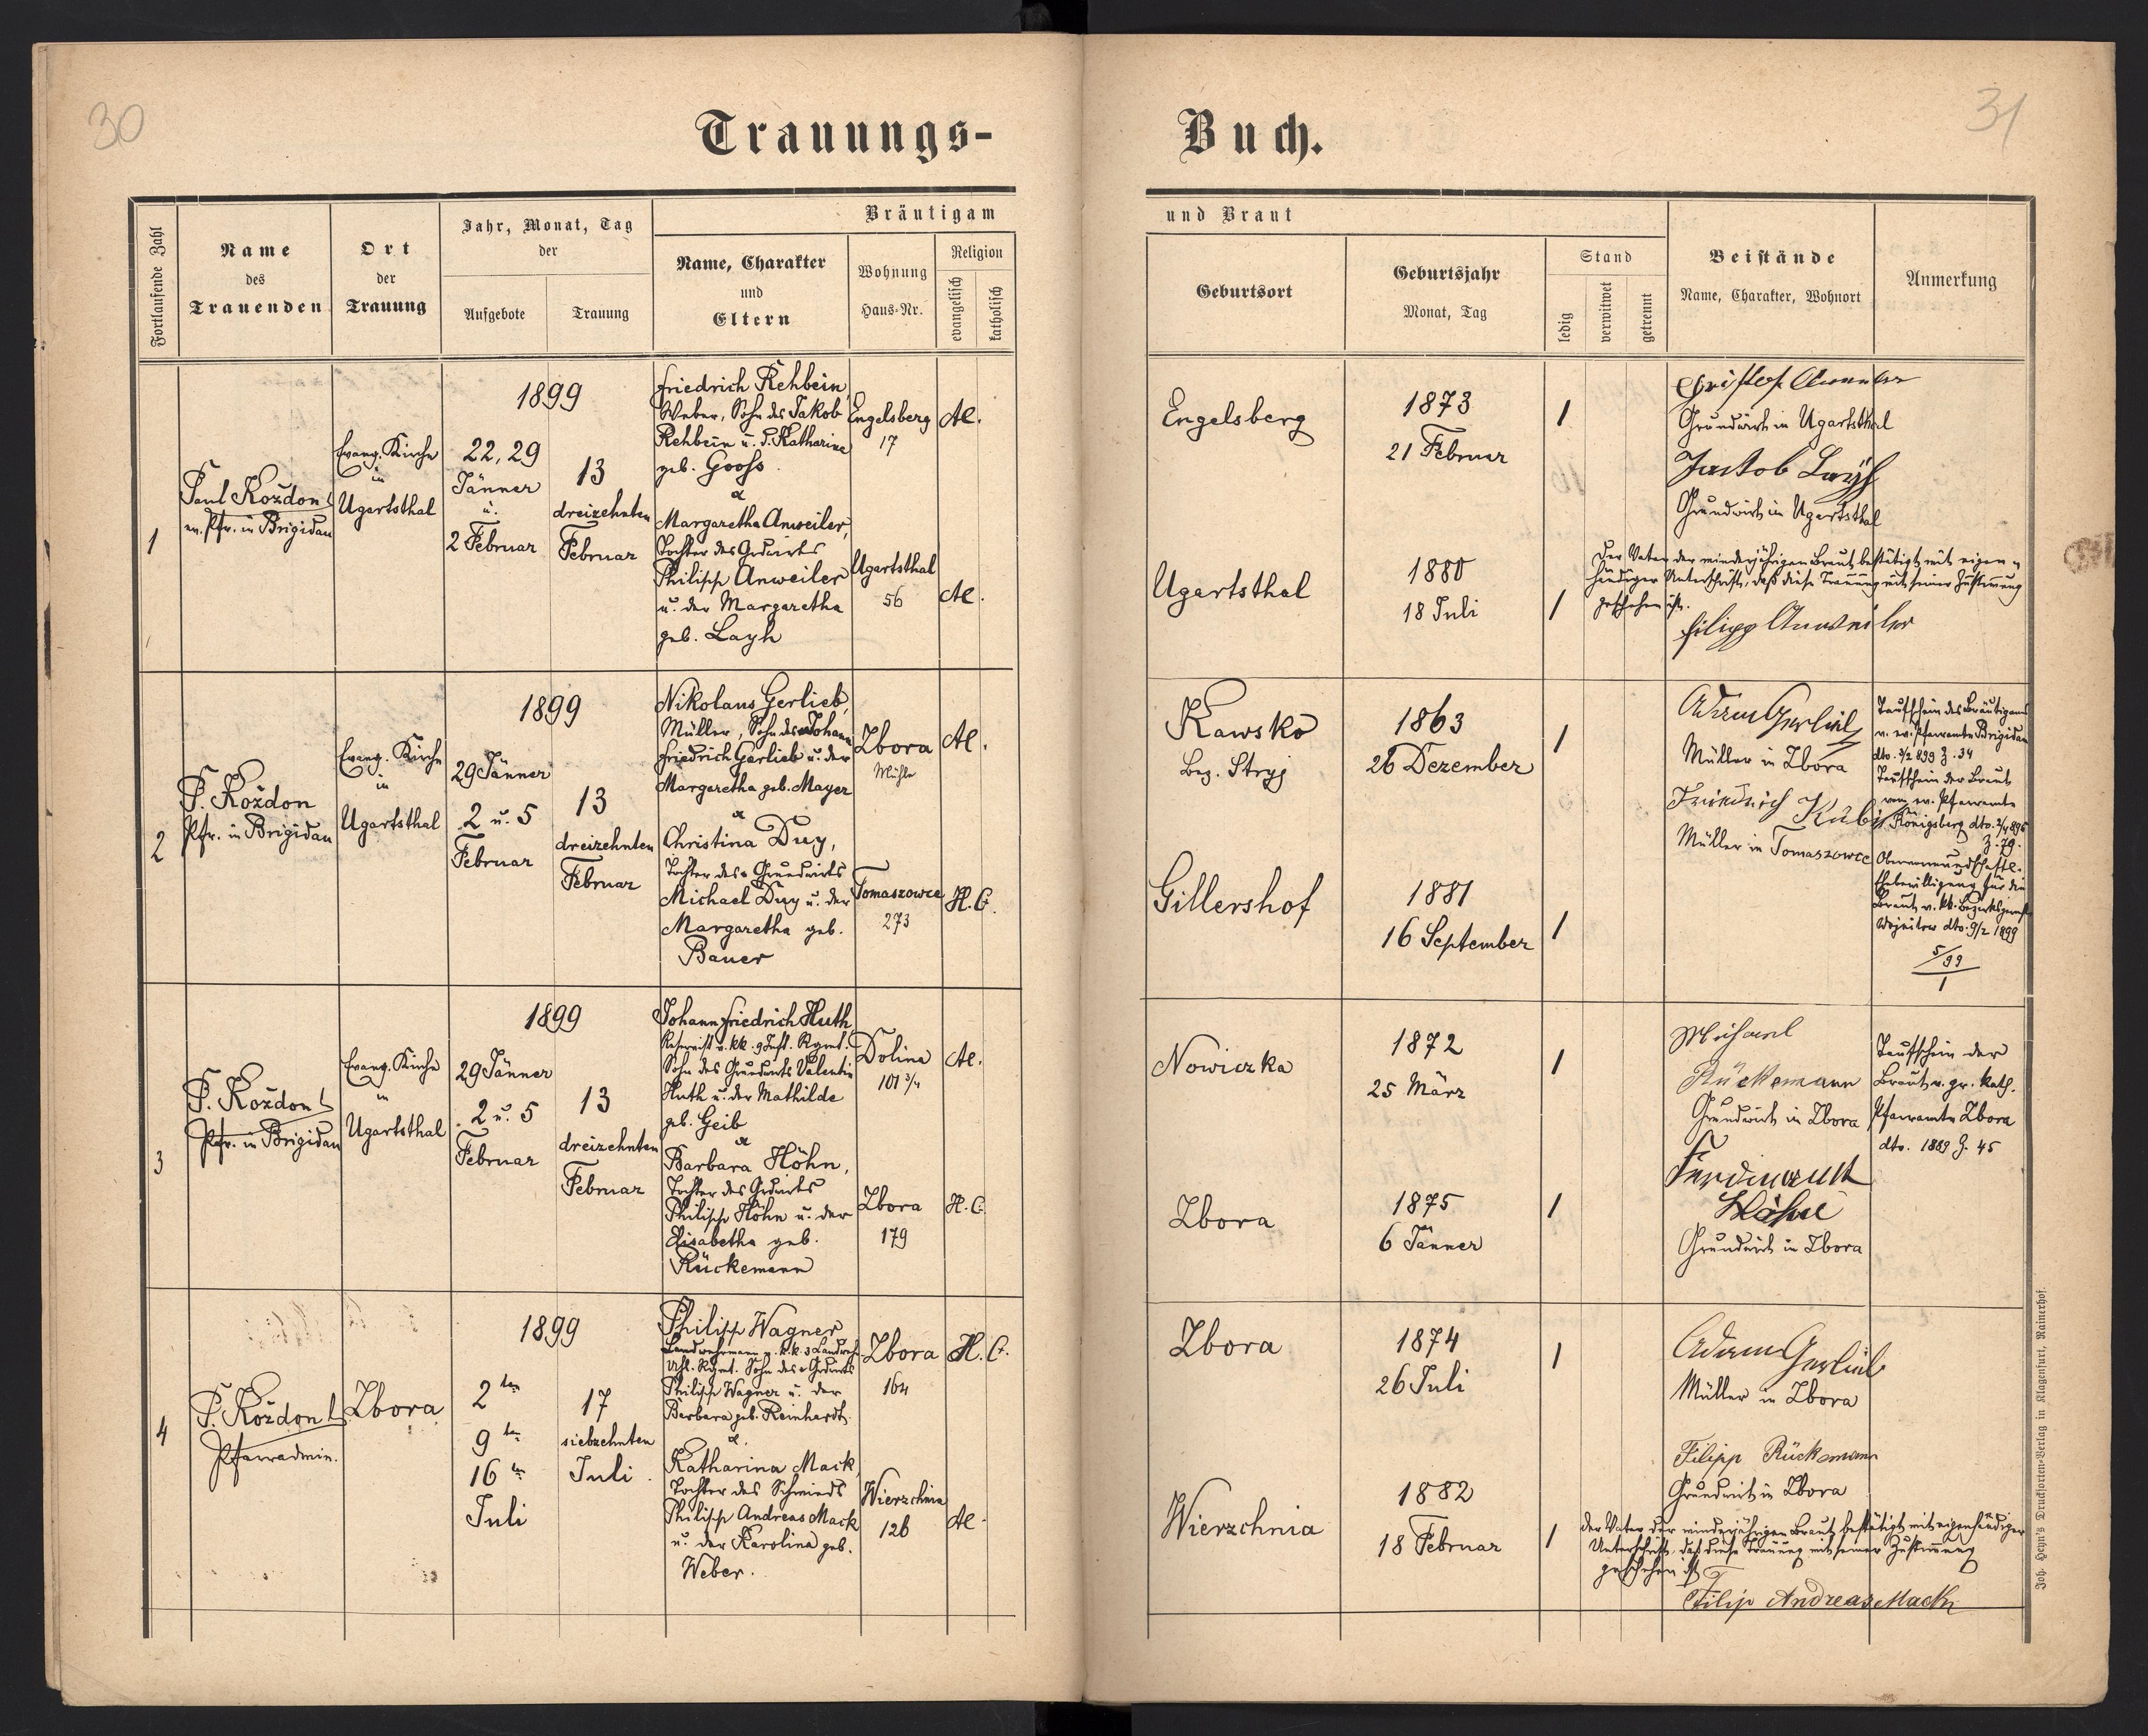 30
Trauungs-
Fortlaufende Zahl
Name
des
Trauenden
Ort
der
Trauung
Jahr, Monat, Tag
der
Aufgebote
Trauung
Bräutigam
Name, Charakter
und
Eltern
Wohnung
Haus-Nr.
Religion
evangelisch
katholisch
1
Paul Kożdon
ev. Pfr. in Brigidau
Evang. Kirche
in
Ugartsthal
1899
22, 29
Jänner
u.
2 Februar
13
dreizehnten
Februar
Friedrich Rehbein
Weber, Sohn des Jakob
Rehbein u. d. Katharina
geb. Gooß.
&
Margaretha Anweiler,
Tochter des Grdwirts
Philipp Anweiler
u. der Margaretha
geb. Layh
Engelsberg
17
Ugartsthal
56
A.C.
A.C.
2
P. Kożdon
Pfr. in Brigidau
Evang. Kirche
in
Ugartsthal
1899
29 Jänner
2 u. 5
Februar
13
dreizehnten
Februar
Nikolaus Gerlieb,
Müller, Sohn des Johann
Friedrich Gerlieb u. der
Margaretha geb. Mayer
&
Christina Duy,
Tochter des Grundwirts
Michael Duy u. der
Margaretha geb.
Bauer
Zbora
Mühle
Tomaszowce
273
A.C.
H.C.
3
P. Kożdon
Pfr. in Brigidau
Evang. Kirche
in
Ugartsthal
1899
29 Jänner
2 u. 5
Februar
13
dreizehnten
Februar
Johann Friedrich Huth
Reservist v. kk. 9 Inft. Rgmt.
Sohn des Grundwirts Valentin
Huth u. der Mathilde
geb. Geib
&
Barbara Höhn,
Tochter des Grdwirts
Philipp Höhn u. der
Elisabetha geb.
Rückemann
Dolina
101 3/4
Zbora
179
A.C.
H.C.
4
P. Kożdon
Pfarradmin.
Zbora
1899
2ten
9ten
16ten
Juli
17
siebzehnten
Juli
Philipp Wagner
Landwehrmann v. k.k. 3 Landweh.
Uhl. Rgmt. Sohn des Grdwirts
Philipp Wagner u. der
Barbara geb. Reinhardt.
&
Katharina Mack,
Tochter des Schmieds
Philipp Andreas Mack
u. der Karolina geb.
Weber.
Zbora
164
Wierzchnia
126
H.C.
A.C.
31
Buch.
und Braut
Geburtsort
Geburtsjahr
Monat, Tag
Stand
ledig
verwitwet
getrennt
Beistände
Name, Charakter, Wohnort
Anmerkung
Engelsberg
1873
21 Februar
1
Grundwirt in Ugartsthal
Jackob Layh
Grundwirt in Ugartsthal
Ugartsthal
1880
18 Juli
1
Der Vater der minderjährigen Braut bestätigt mit eigen-
händiger Unterschrift, daß diese Trauung mit seiner Zustimmung
geschehen ist.
Filipp Anweiler
Kawsko
Bez. Stryj
1863
26 Dezember
1
Adam Gerlieb
Müller in Zbora
Friedrich Kubi
Müller in Tomaszowce
Taufschein des Bräutigams
v. ev. Pfarramte Brigidau
dto. 3/2 899 Z. 34
Taufschein der Braut
vom ev. Pfarramte
Königsberg dto. 2/4 896
Z. 79.
Obervormundschaftl.
Ehebewilligung für die
Braut v. kk. Bezirksgericht
Wojnilow dto. 9/2 1899
5/99
1
Gillershof
1881
16 September
1
Nowiczka
1872
25 März
1
Michael
Rückemann
Grundwirt in Zbora
Ferdinand
Höhn
Grundwirt in Zbora
Taufschein der
Braut v. gr. kath.
Pfarramte Zbora
dto. 1889 Z. 45
Zbora
1875
6 Jänner
1
Zbora
1874
26 Juli
1
Adam Gerlieb
Müller in Zbora
Filipp Rückemann
Grundwirt in Zbora
Wierzchnia
1882
18 Februar
1
Der Vater der minderjährigen Braut bestätigt mit eigenhändiger
Unterschrift, daß diese Trauung mit seiner Zustimmung
geschehen ist
Filip Andreas Mack
Joh. Heyn's Drucksorten-Verlag in Klagenfurt, Rainerhof.